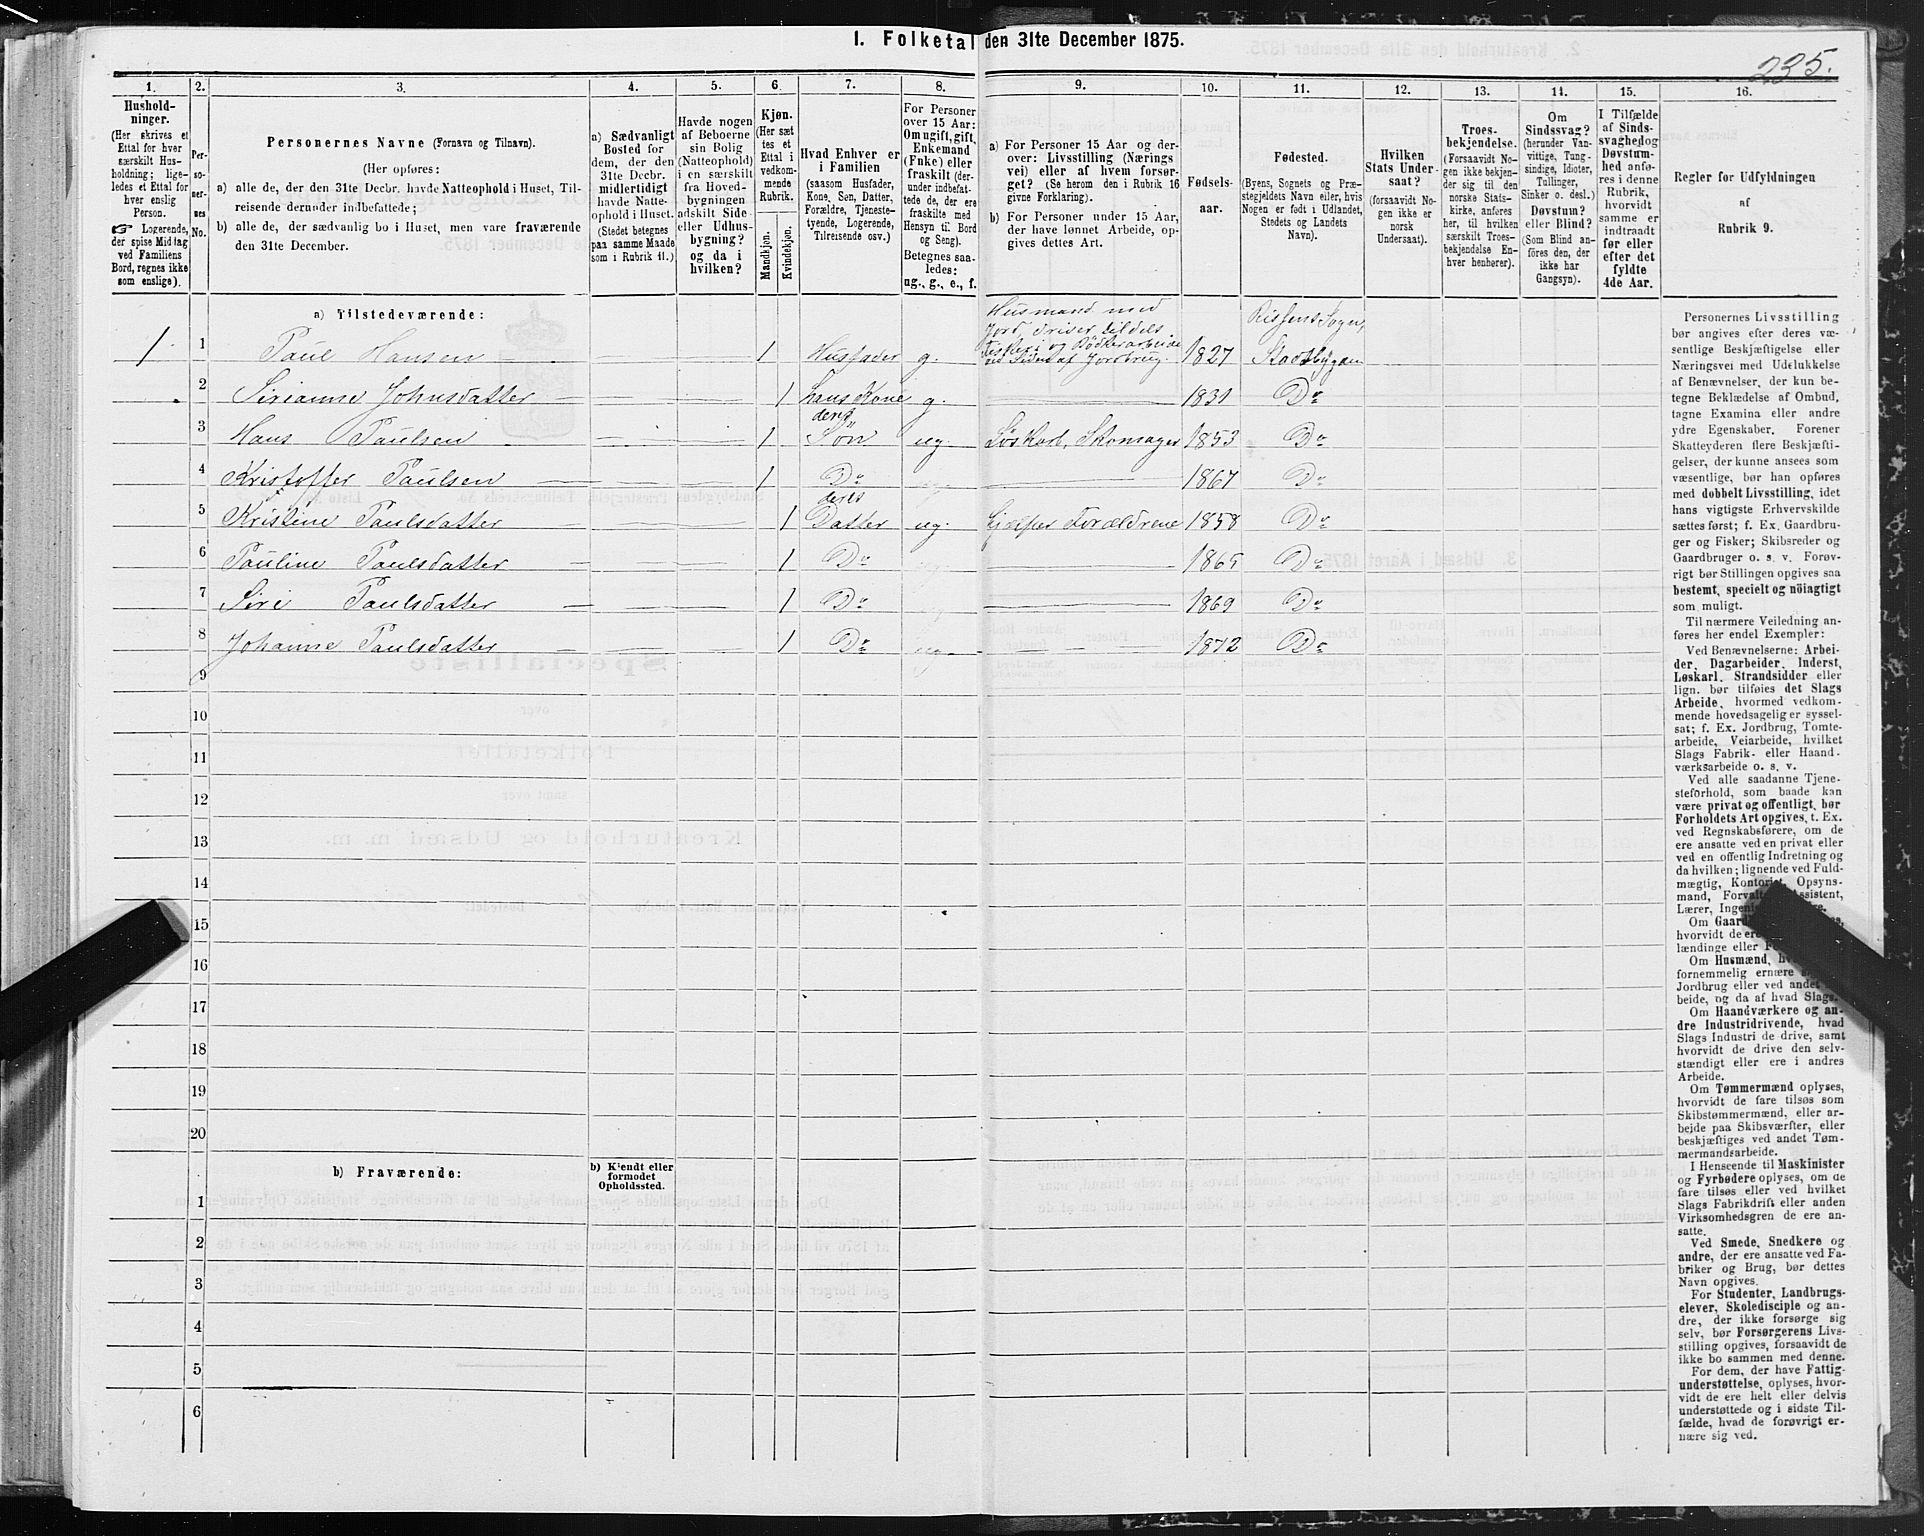 I. Folketal den 31te December 1875.
235.
1.
Husholdninger.
(Her skrives et
Ettal for hver
særskilt Husholdning;
ligeledes et Ettal for
hver enslig
Person.
☞ Logerende,
der spise Middag
ved Familiens
Bord, regnes ikke
som enslige).
2.
Personernes
No.
3.
Personernes Navne (Fornavn og Tilnavn).
(Her opføres:
a) alle de, der den 31te Decbr. havde Natteophold i Huset, Tilreisende derunder indbefattede;
b) alle de, der sædvanlig bo i Huset, men vare fraværende
den 31te December.
4.
a) Sædvanligt
Bosted for
dem, der den
31te Decbr.
midlertidigt
havde Natteophold i Huset.
(Stedet betegnes
paa samme Maade
som i Rubrik 11.)
5.
Havde nogen
af Beboerne
sin Bolig
(Natteophold)
i en særskilt
fra Hovedbygningen
adskilt Side-
eller Udhusbygning?
og da i
hvilken?
6.
Kjøn.
(Her sættes et
Ettal i
vedkommende
Rubrik.
Mandkjøn.
Kvindekjøn.
7.
Hvad Enhver er
i Familien
(saasom Husfader,
Kone, Søn, Datter,
Forældre, Tjenestetyende, Logerende,
Tilreisende osv.)
8.
For Personer
over 15 Aar:
Om ugift, gift,
Enkemand
(Enke) eller
fraskilt (derunder indbefattede de, der ere
fraskilte med
Hensyn til Bord
og Seng).
Betegnes saaledes:
ug., g., e., f.
9.
a) For Personer 15 Aar og derover: Livsstilling (Næringsvei) eller af hvem forsørget? (Se herom den i Rubrik 16
givne Forklaring).
b) For Personer under 15 Aar,
der have lønnet Arbeide, opgives dettes Art.
10.
Fødselsaar.
11.
Fødested.
(Byens, Sognets og Præstegjeldets Navn eller, hvis
Nogen er født i Udlandet,
Stedets og Landets
Navn).
12.
Hvilken
Stats Undersaat?
(forsaavidt Nogen ikke er
norsk
Undersaat).
13.
Troesbekjendelse.
(Forsaavidt Nogen ikke bekjender sig til den
norske Statskirke, anføres
her, til hvilken
særskilt Troesbekjendelse Enhver henhører).
14.
Om
Sindssvag?
(herunder Vanvittige, Tungsindige, Idioter,
Tullinger,
Sinker o. desl.)
Døvstum?
eller Blind?
(Som Blind anføres den, der
ikke har
Gangsyn).
15.
I Tilfælde
af Sindssvaghed og
Døvstumhed anføres i denne
Rubrik,
hvorvidt
samme er
indtraadt
før eller
efter det
fyldte
4de Aar.
16.
Regler for Udfyldningen
af
Rubrik 9.
a) Tilstedeværende:
1 1 Paul Hansen 1 Husfader g. Husmand med Jord, driver tildels Fiskeri og Bødkerarbeide ved Siden af Jordbrug. 1827 Rissens Sogn, Stadsbygden
2 Sirianne Johnsdatter 1 hans Kone g. 1831 Do
3 Hans Paulsen 1 deres Søn ug. Løskarl, Skomager 1853 Do
4 Kristoffer Paulsen 1 Do 1867 Do
5 Kristine Paulsdatter 1 deres Datter ug. hjælper Forældrene 1858 Do
6 Pauline Paulsdatter 1 Do 1865 Do
7 Siri Paulsdatter 1 Do 1869 Do
8 Johanne Paulsdatter 1 Do 1872 Do
9
10
11
12
13
14
15
16
17
18
19
20
b) Fraværende:
b) Kjendt eller
formodet
Opholdssted.
1
2
3
4
5
6
Personernes Livsstilling
bør angives efter deres væsentlige Beskjæftigelse eller
Næringsvei med Udelukkelse
af Benævnelser, der kun betegne Beklædelse af Ombud,
tagne Examina eller andre
ydre Egenskaber. Forener
Skatteyderen flere Beskjæftigelser, der kunne ansees som
væsentlige, bør han opføres
med dobbelt Livsstilling, idet
hans vigtigste Erhvervskilde
sættes først; f. Ex. Gaardbruger og Fisker; Skibsreder og
Gaardbruger o. s. v. Forøvrigt bør Stillingen opgives saa
bestemt, specielt og nöiagtigt
som muligt.
Til nærmere Veiledning anføres her endel Exempler:
Ved Benævnelserne: Arbeider, Dagarbeider, Inderst,
Løskarl, Strandsidder eller
lign. bør tilføies det Slags
Arbeide, hvormed vedkommende hovedsagelig er sysselsat; f. Ex. Jordbrug, Tomtearbeide, Veiarbeide, hvilket
Slags Fabrik- eller Haandværksarbeide o. s. v.
Ved alle saadanne Tjenesteforhold, som baade kan
være privat og offentligt, bør
Forholdets Art opgives, t. Ex.
ved Regnskabsførere, om de
ere ansatte ved en privat eller
ved en offentlig Indretning og
da hvilken; lignende ved Fuldmægtig, Kontorist, Opsynsmand, Forvalter, Assistent,
Lærer,
Om
hvorvidt de ere
lændinge eller
Om Husmænd,
fornemmelig ernære
Jordbrug eller ved andet Arbeide, og da af hvad Slags.
Om Haandværkere og andre Industridrivende, hvad
Slags Industri de drive, samt
hvorvidt de drive den selvstændigt eller ere i andres
Arbeide.
Om Tømmermænd oplyses,
hvorvidt de fare tilsøs som
Skibstømmermænd, eller arbejde paa Skibsværfter, eller
beskjæftiges ved andet Tømmermandsarbeide.
I Henseende til Maskinister
og Fyrbødere oplyses, om de
fare tilsøs eller ved hvilket
Slags Fabrikdrift eller anden
Virksomhedsgren de ere ansatte.
Ved Smede, Snedkere og
andre, der ere ansatte ved Fabriker og Brug, bør dettes
Navn opgives.
For Studenter, Landbrugselever, Skoledisciple og andre, der ikke forsørge sig
selv, bør Forsørgerens Livsstilling opgives, forsaavidt de
ikke bo sammen med denne.
For dem, der have Fattigunderstøttelse, oplyses, hvorvidt de ere helt eller delvis
understøttede og i sidste Tilfælde, hvad de forøvrigt ernære sig ved.